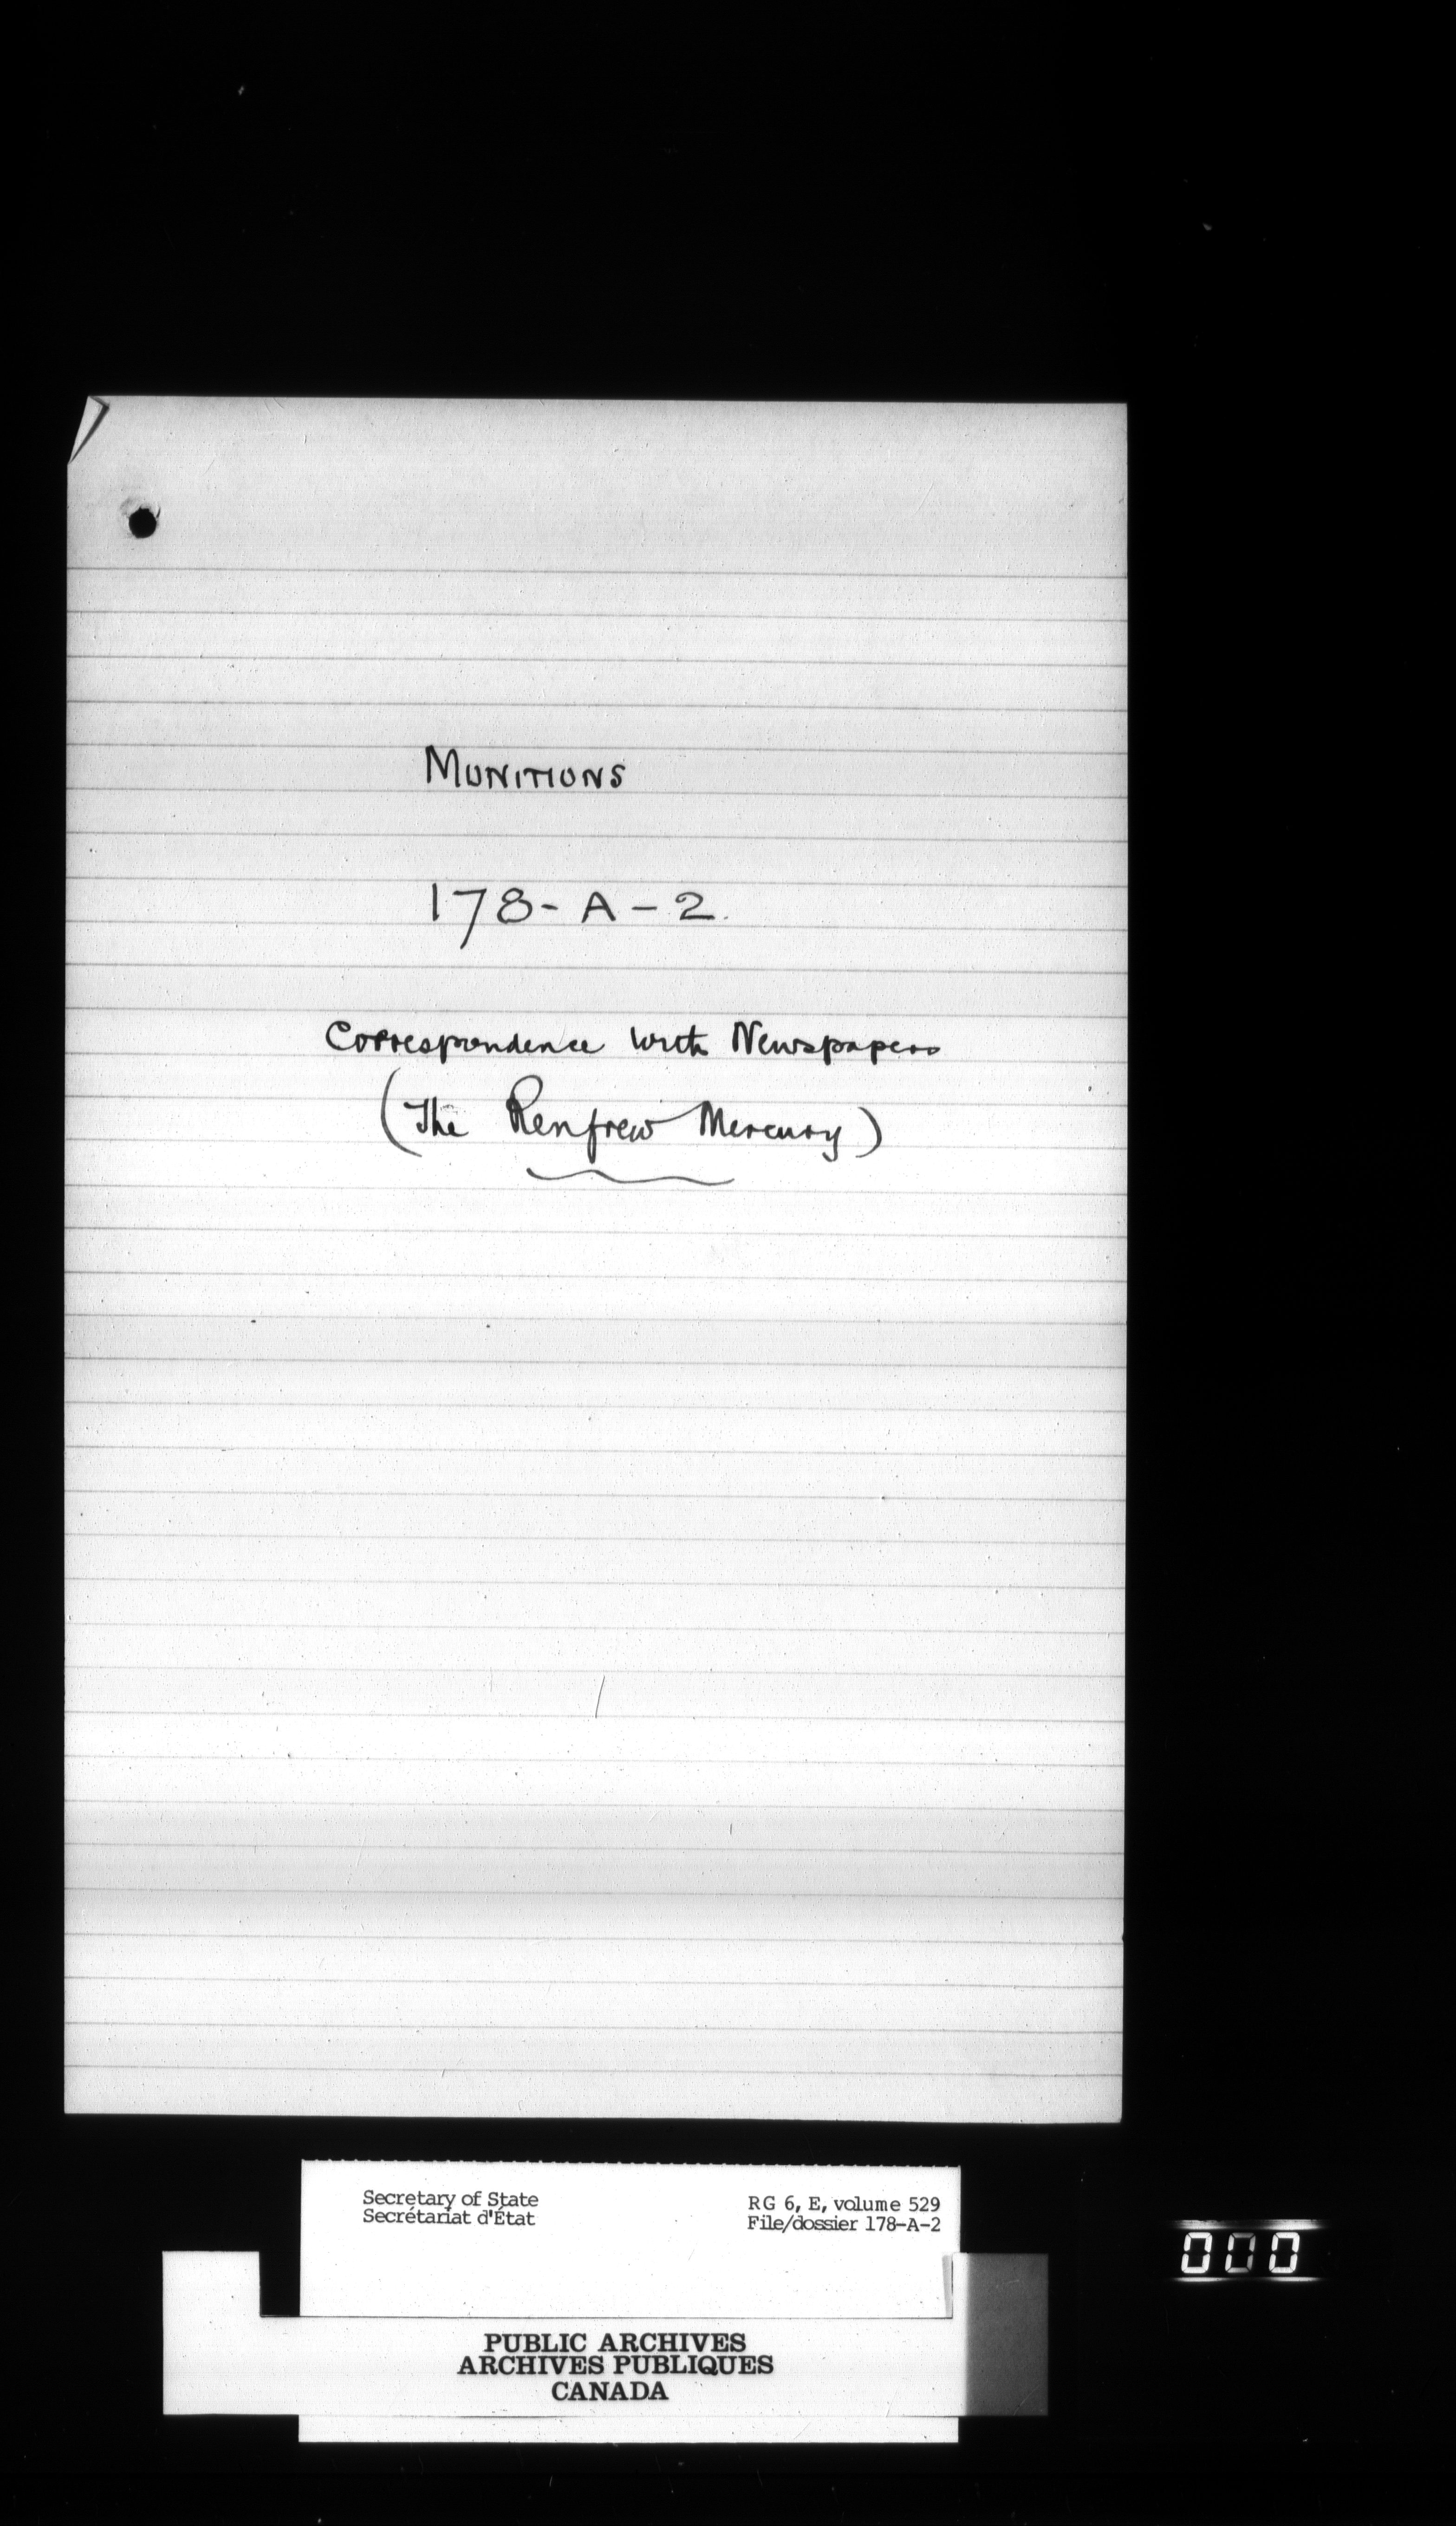 MUNITIONS
178-A-2.
Correspondence with Newspapers
(The Renfrew Mercury)
Secretary of State
Secrétariat d'État
RG 6, E, volume 529
File/dossier 178-A-2
000
PUBLIC ARCHIVES
ARCHIVES PUBLIQUES
CANADA